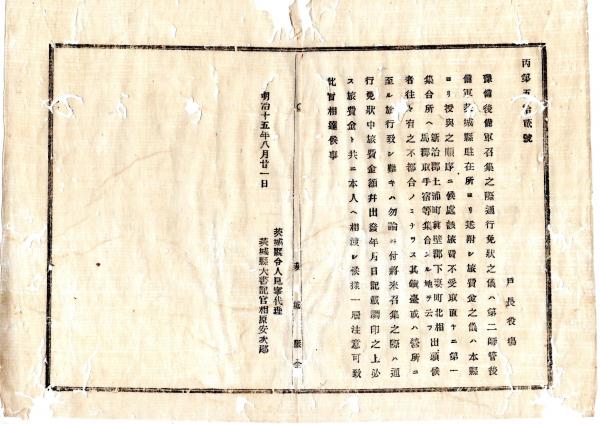 丙第五拾貳號
戸長役場
豫備後備軍召集之際通行免狀之儀ハ第二師管後
備軍茨城縣駐在所ヨリ送附シ旅費金之儀ハ本縣
ヨリ授與之順序ニ候處該旅費不受取直チニ第一
集合所ヘ新治郡土浦町眞壁郡下妻町北相馬郡取手宿等集合スル地ヲ云フ出頭候
者往々有之不都合ノミナラス其鎭臺或ハ營所ニ
至ル旅行致シ難キハ勿論ニ付將來召集之際ハ通
行免狀中旅費金額幷出發年月日記載調印之上必
ス旅費金ト共ニ本人ヘ相渡シ候樣一層注意可致
此旨相達候事
明治十五年八月廿一日
茨城縣令人見寧代理
茨城縣大書記官相原安次郎
茨城縣令